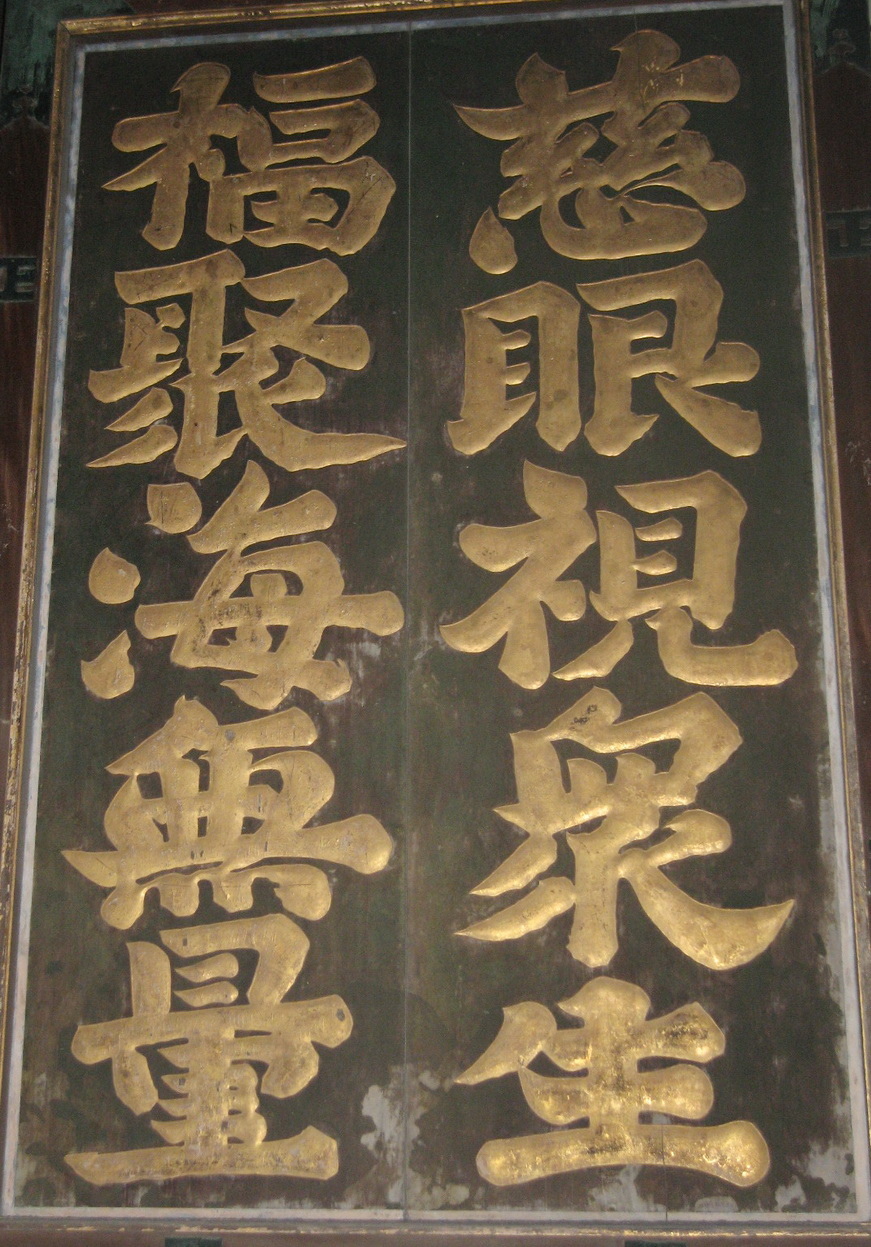 慈眼視眾生
福聚海無量